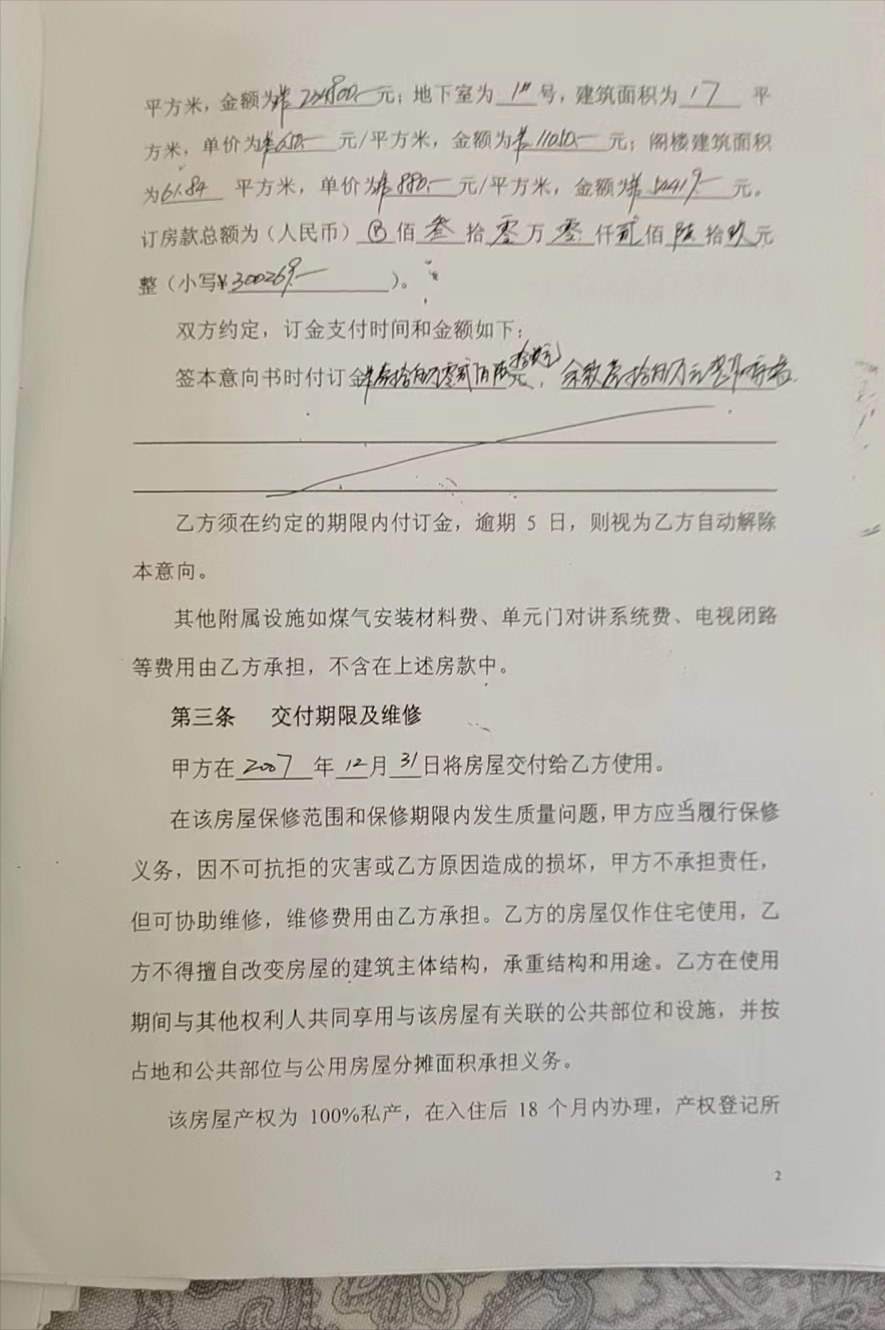 平方米，金额为¥234800.—元；地下室为1#号，建筑面积为17平
方米，单价为¥650.—元/平方米，金额为¥11050.—元；阁楼建筑面积
为61.84平方米，单价为¥880.—元/平方米，金额为¥54419.—元。
订房款总额为（人民币）⊗佰叁拾零万零仟贰佰陆拾玖元
整（小写¥300269.—）。
双方约定，订金支付时间和金额如下：
签本意向书时付订金 拾 万零贰佰陆拾玖元，余款 拾 万元
乙方须在约定的期限内付订金，逾期 5 日，则视为乙方自动解除
本意向。
其他附属设施如煤气安装材料费、单元门对讲系统费、电视闭路
等费用由乙方承担，不含在上述房款中。
第三条 交付期限及维修
甲方在2007年12月31日将房屋交付给乙方使用。
在该房屋保修范围和保修期限内发生质量问题，甲方应当履行保修
义务，因不可抗拒的灾害或乙方原因造成的损坏，甲方不承担责任，
但可协助维修，维修费用由乙方承担。乙方的房屋仅作住宅使用，乙
方不得擅自改变房屋的建筑主体结构，承重结构和用途。乙方在使用
期间与其他权利人共同享用与该房屋有关联的公共部位和设施，并按
占地和公共部位与公用房屋分摊面积承担义务。
该房屋产权为 100%私产，在入住后 18 个月内办理，产权登记所
2